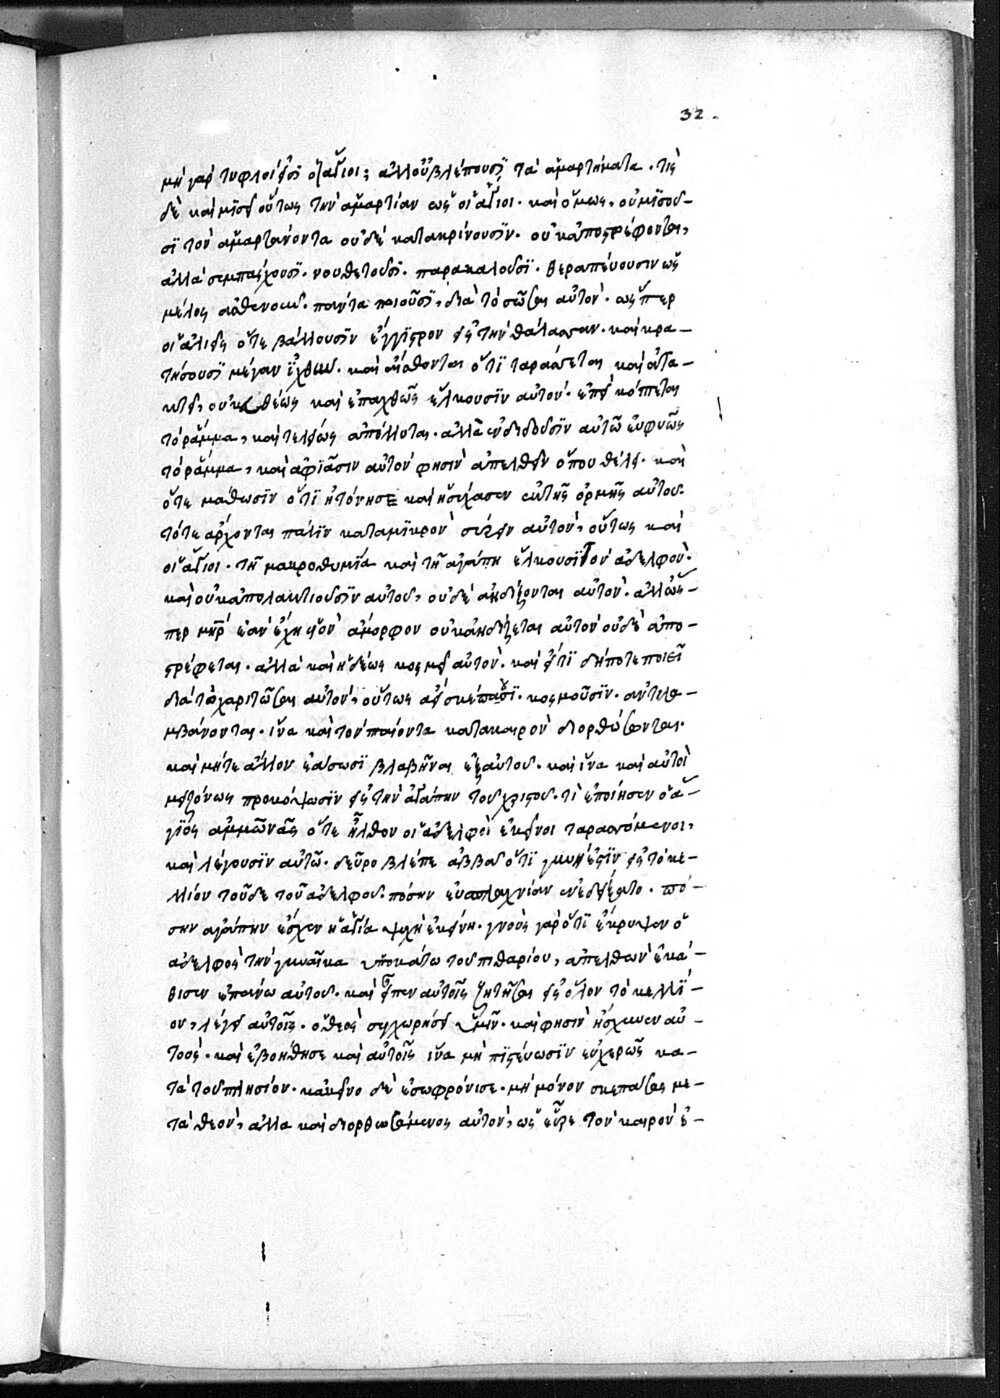 32
μὴ γὰρ τυφλοί εἰσϊ οἱ ἅγιοι; ἀλλ' οὐ βλέπουσϊ τὰ ἁμαρτήματα. τίς
δὲ καὶ μϊσεῖ οὕτως τὴν ἁμαρτίαν ὡς οἱ ἅγιοι. καὶ ὅμως, οὐ μϊσοῦ-
σϊ τὸν ἁμαρτάνοντα οὐδὲ κατακρίνουσϊν. οὐκ ἀποστρέφονται,
ἀλλὰ συμπάσχουσϊ. νουθετοῦσϊ. παρακαλοῦσϊ. θεραπεύουσιν ὡς
μέλος ἀσθενοῦν. πάντα ποιοῦσϊ, διὰ τὸ σῶσαι αὐτόν. ὥσπερ
οἱ ἁλιεῖς ὅτε βάλλουσϊν ἄγγϊστρον εἰς τὴν θάλασσαν. καὶ κρα-
τήσουσϊ μέγαν ἰχθὺν. καὶ αἴσθονται ὅτϊ ταράσσεται καὶ ἀτα-
κτεῖ, οὐκ εὐθέως καὶ ἐπαχθῶς ἕλκουσϊν αὐτόν. ἐπεὶ κόπτεται
τὸ ῥάμμα, καὶ τελείως ἀπόλλυται. ἀλλὰ ἐνδιδοῦσϊν αὐτῶ εὐφυῶς
τὸ ῥάμμα, καὶ ἀφϊᾶσιν αὐτὸν φησὶν ἀπελθεῖν ὅπου θέλει. καὶ
ὅτε μάθωσϊν ὅτϊ ἠτόνησε καὶ ἡσύχασεν ἐκ τῆς ὁρμῆς αὐτοῦ.
τότε ἄρχονται πάλϊν κατὰ μϊκρὸν σύρειν αὐτόν, οὕτως καὶ
οἱ ἅγιοι. τῆ μακροθυμΐα καὶ τῆ ἀγάπη ἕλκουσϊ τὸν ἀδελφόν.
καὶ οὐκ ἀπολακτιοῦσϊν αὐτοῦ, οὐδὲ ἀηδίζονται αὐτόν. ἀλλ' ὥσ-
περ μηρ ἐὰν ἔχη υἱὸν ἄμορφον οὐκ ἀηδίζεται αὐτὸν οὐδὲ ἀπο-
στρέφεται. ἀλλὰ καὶ ἡδέως κοσμεῖ αὐτόν. καὶ εἴ τϊ δήποτε ποιεῖ
διὰ τὸ χαριτῶσαι αὐτόν, οὕτως ἀεὶ σκέπουσϊ. κοσμοῦσϊν. ἀντιλα-
μβάνονται. ἵνα καὶ τὸν πταίοντα κατὰ καιρὸν διορθώσονται.
καὶ μήτε ἄλλον ἐάσωσϊ βλαβῆναι ἐξ αὐτοῦ. καὶ ἵνα καὶ αὐτοὶ
μειζόνως προκόψωσϊν εἰς τὴν ἀγάπην τοῦ χριστοῦ. τί ἐποίησεν ὁ ἅ-
γϊος ἀμμωνᾶς ὅτε ἦλθον οἱ ἀδελφοὶ ἐκεῖνοι ταρασσόμενοι,
καὶ λέγουσϊν αὐτῶ. δεῦρο βλέπε ἀββᾶ ὅτϊ γυνή ἐστϊν εἰς τὸ κε-
λλίον τοῦδε τοῦ ἀδελφοῦ. πόσην εὐσπλαγχνίαν ἐνεδείξατο. πό-
σην ἀγάπην ἔσχεν ἡ ἁγία ψυχὴ ἐκείνη. γνοὺς γὰρ ὅτϊ ἔκρυψεν ὁ
ἀδελφὸς τὴν γυναῖκα ὑποκάτω τοῦ πιθαρίου, ἀπελθὼν ἐκά-
θισεν ἐπάνω αὐτοῦ. καὶ εἶπεν αὐτοῖς ζητῆσαι εἰς ὅλον τὸ κελλϊ-
ον, λέγει αὐτοῖς. ὁ θεὸς συγχωρήσει ὑμῖν. καὶ φησὶν ἤσχυνεν αὐ-
τοὺς. καὶ ἐβοήθησε καὶ αὐτοῖς ἵνα μὴ πϊστεύωσϊν εὐχερῶς κα-
τὰ τοῦ πλησίον. κἀκεῖνο δὲ ἐσωφρόνισε. μὴ μόνον σκεπάσας με-
τὰ θεόν, ἀλλὰ καὶ διορθωσάμενος αὐτόν, ὡς εὗρε τὸν καιρὸν ἐ-